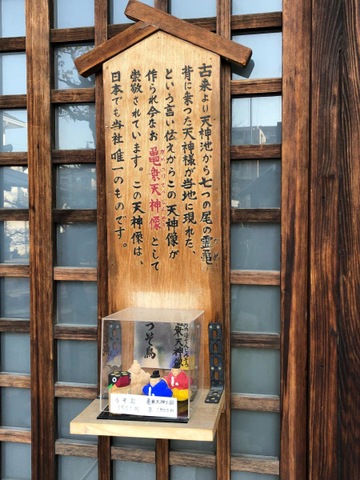 古来より天神池から七つの尾の霊亀に
背に乗った天神様が当地に現れた、
という言い伝えからこの天神像が
作られ今なお亀乗天神像として
崇敬されています。この天神像は、
日本でも当社唯一のものです。
うそ鳥
乗天神